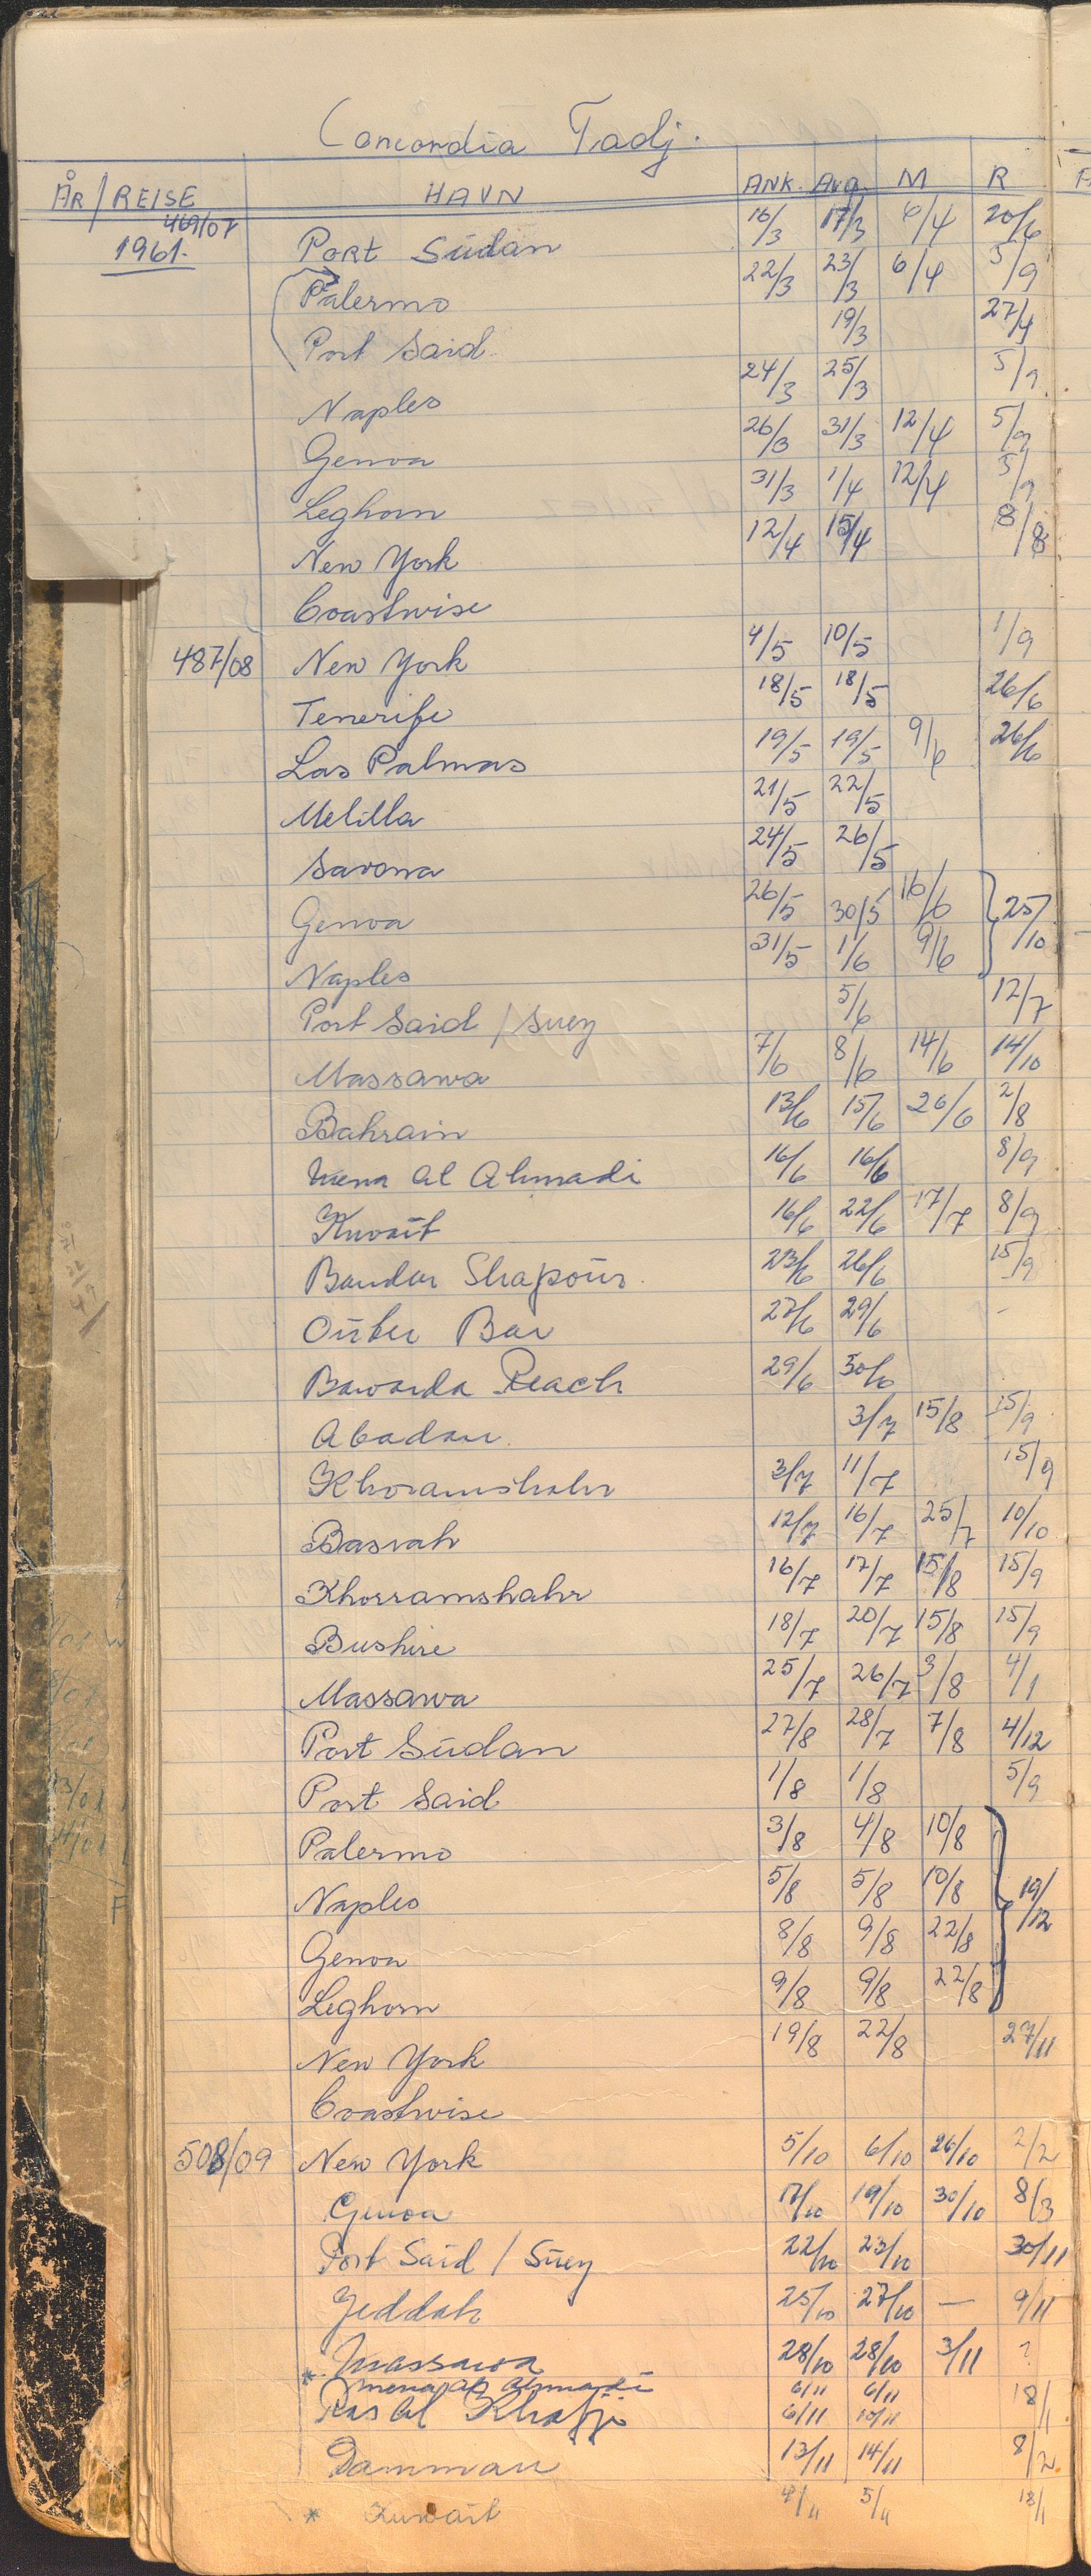 Concordia Tadj.
ÅR / REISE HAVN ANK. Avg. M R
469/07
1961. Port Südan 16/3 17/3 6/4 20/6
Palermo 22/3 23/3 6/4 5/9
Port Said 19/3 27/4
Naples 24/3 25/3 5/9
Genoa 26/3 31/3 12/4 5/9
Leghorn 31/3 1/4 12/4 5/9
New York 12/4 15/4 8/8
Coastwise
487/08 New York 4/5 10/5 1/9
Tenerife 18/5 18/5 26/6
Las Palmas 19/5 19/5 9/6 26/6
Melilla 21/5 22/5
Savona 24/5 26/5
Genoa 26/5 30/5 16/6 25/10
Naples 31/5 1/6 9/6
Port Said / Suez 5/6 12/7
Massawa 7/6 8/6 14/6 14/10
Bahrain 13/6 15/6 26/6 2/8
Mena al Ahmadi 16/6 16/6 8/9
Kuwait 16/6 22/6 17/7 8/9
Bandar Shapour 23/6 26/6 15/9
Outer Bar 27/6 29/6 -
Bawarda Reach 29/6 30/6
Abadan 3/7 15/8 15/9
Khoramshahr 3/7 11/7 15/9
Basrah 12/7 16/7 25/7 10/10
Khorramshahr 16/7 17/7 15/8 15/9
Bushire 18/7 20/7 15/8 15/9
Massawa 25/7 26/7 3/8 4/1
Port Südan 27/8 28/7 7/8 4/12
Port Said 1/8 1/8 5/9
Palermo 3/8 4/8 10/8
Naples 5/8 5/8 10/8 19/12
Genoa 8/8 9/8 22/8
Leghorn 9/8 9/8 22/8
New York 19/8 22/8 27/11
Coastwise
508/09 New York 5/10 6/10 26/10 2/2
Genoa 17/10 19/10 30/10 8/3
Port Said / Süez 22/10 23/10 30/11
Jeddah 25/10 27/10 — 9/11
* Massawa 28/10 28/10 3/11 ?
mena al ahmadi 6/11 6/11
Ras al Khafji 6/11 10/11 18/1
Damman 13/11 14/11 8/2
* Kuwait 4/11 5/11 18/1